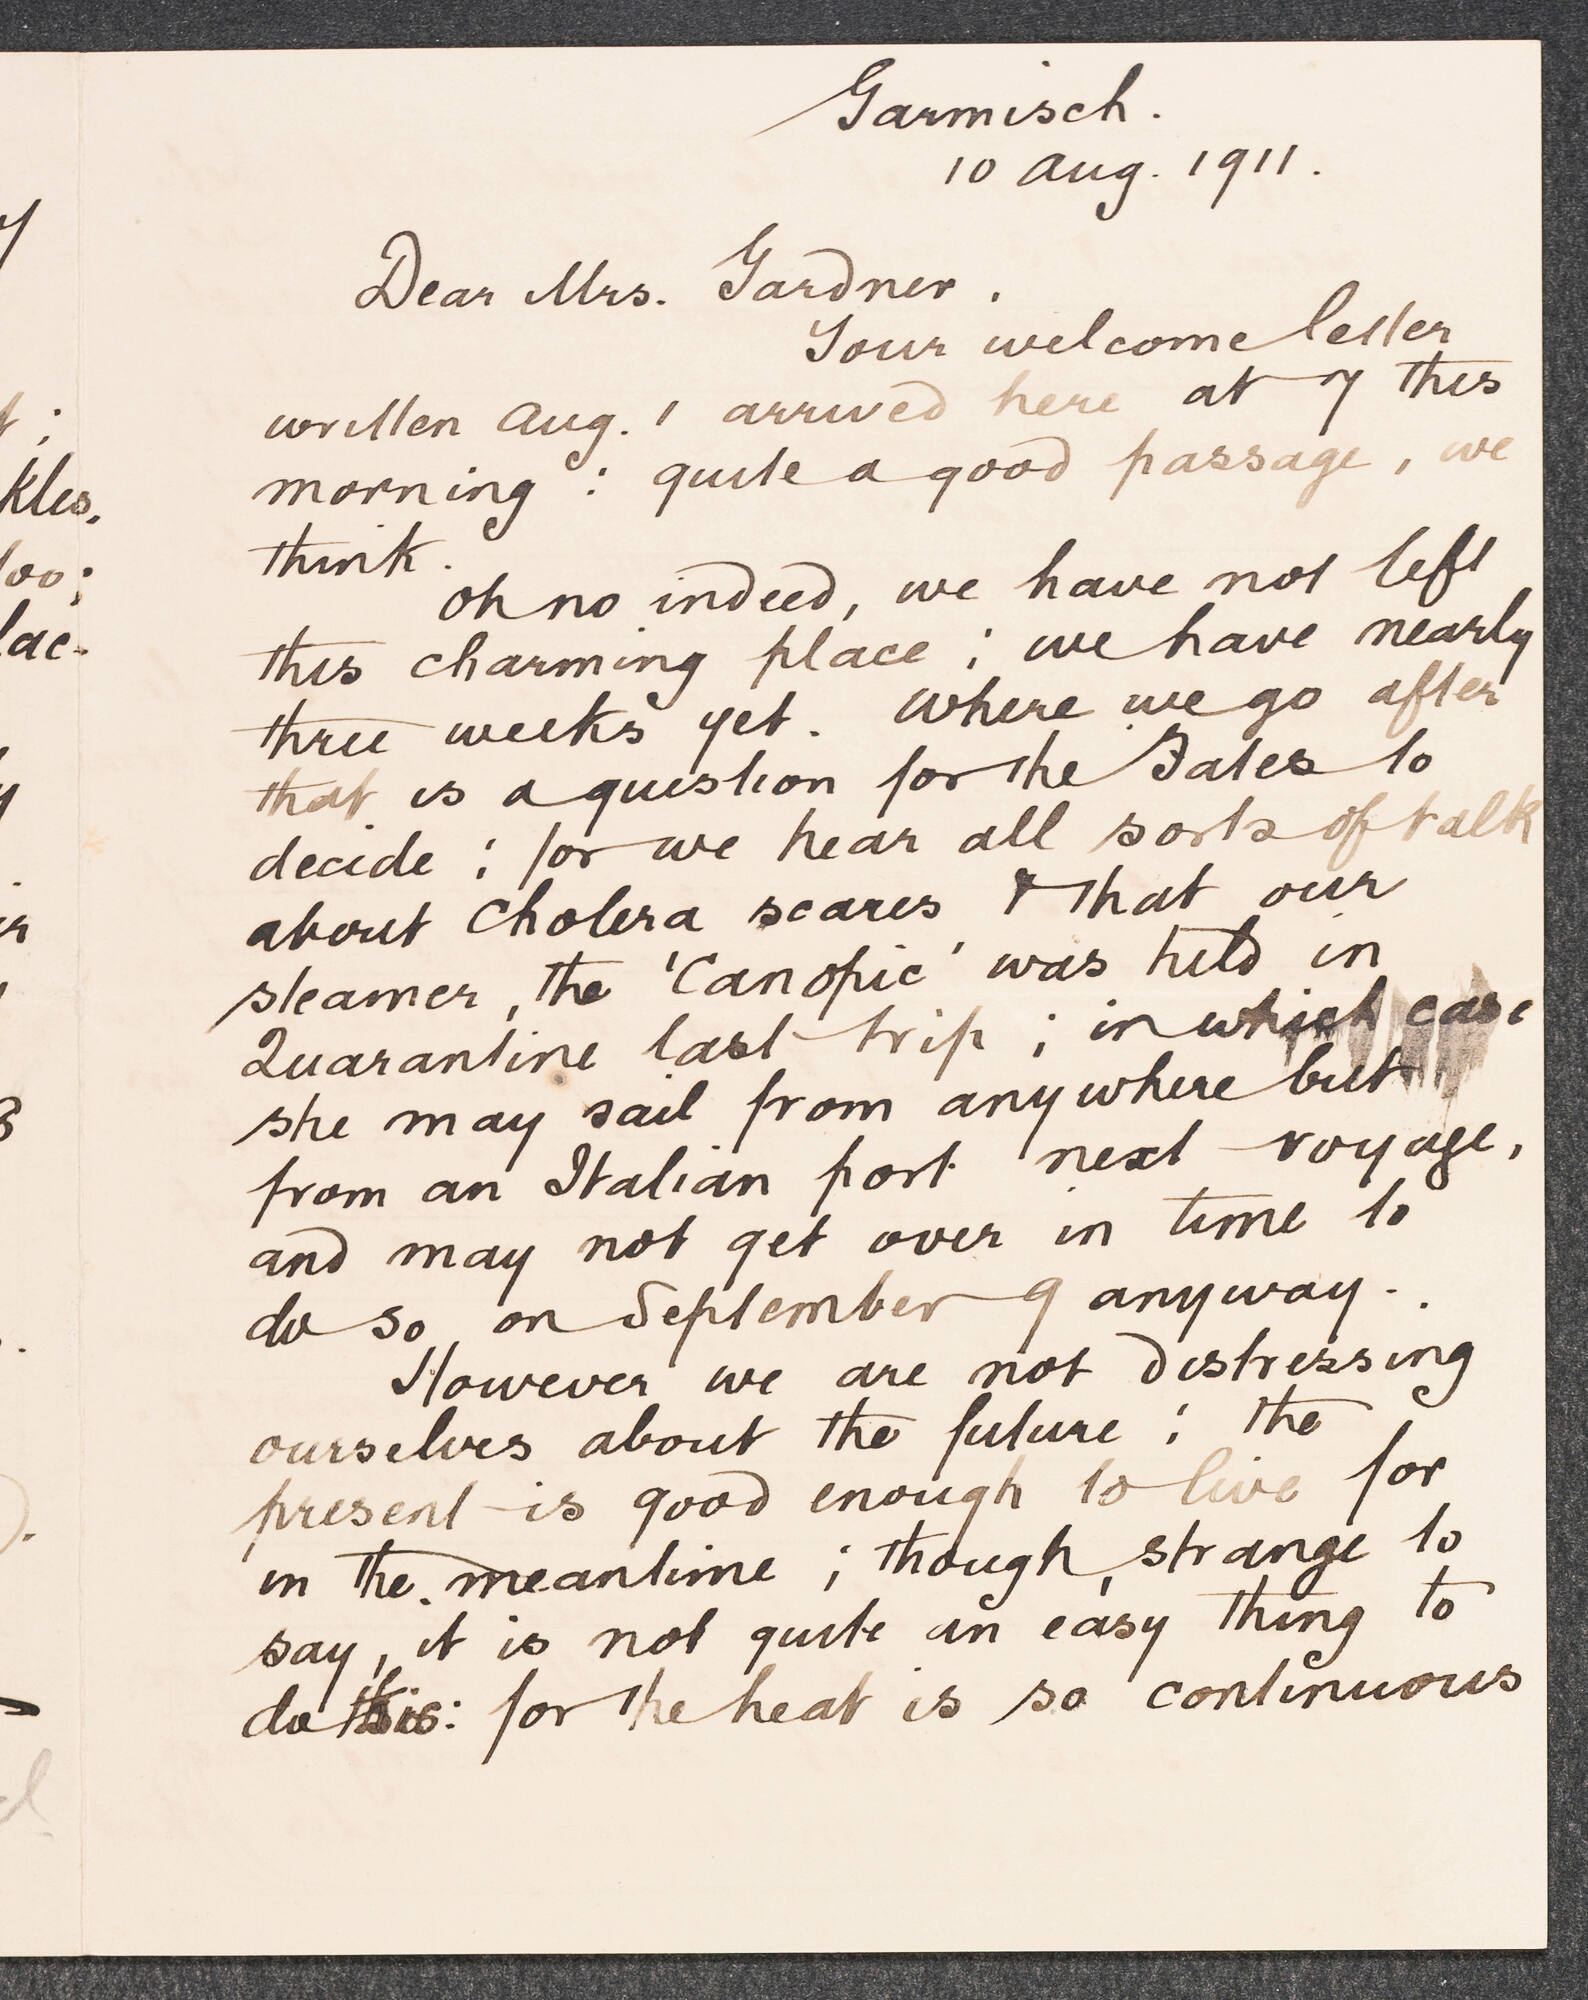 Garmisch.
10 Aug. 1911.
Dear Mrs. Gardner.
Your welcome letter
written Aug. 1 arrived here at 7 this
morning : quite a good passage, we
think.
Oh no indeed, we have not left
this charming place ; we have nearly
three weeks yet. Where we go after
that is a question for the Fates to
decide ; for we hear all sorts of talk
about Cholera scares & that our
steamer, the 'Canopic' was held in
Quarantine last trip ; in which case
she may sail from anywhere but
from an Italian port next voyage,
and may not get over in time to
do so, on September 9 anyway.
However we are not distressing
ourselves about the future ; the
present is good enough to live for
in the meantime ; though, strange to
say, it is not quite an easy thing to
do this : for the heat is so continuous